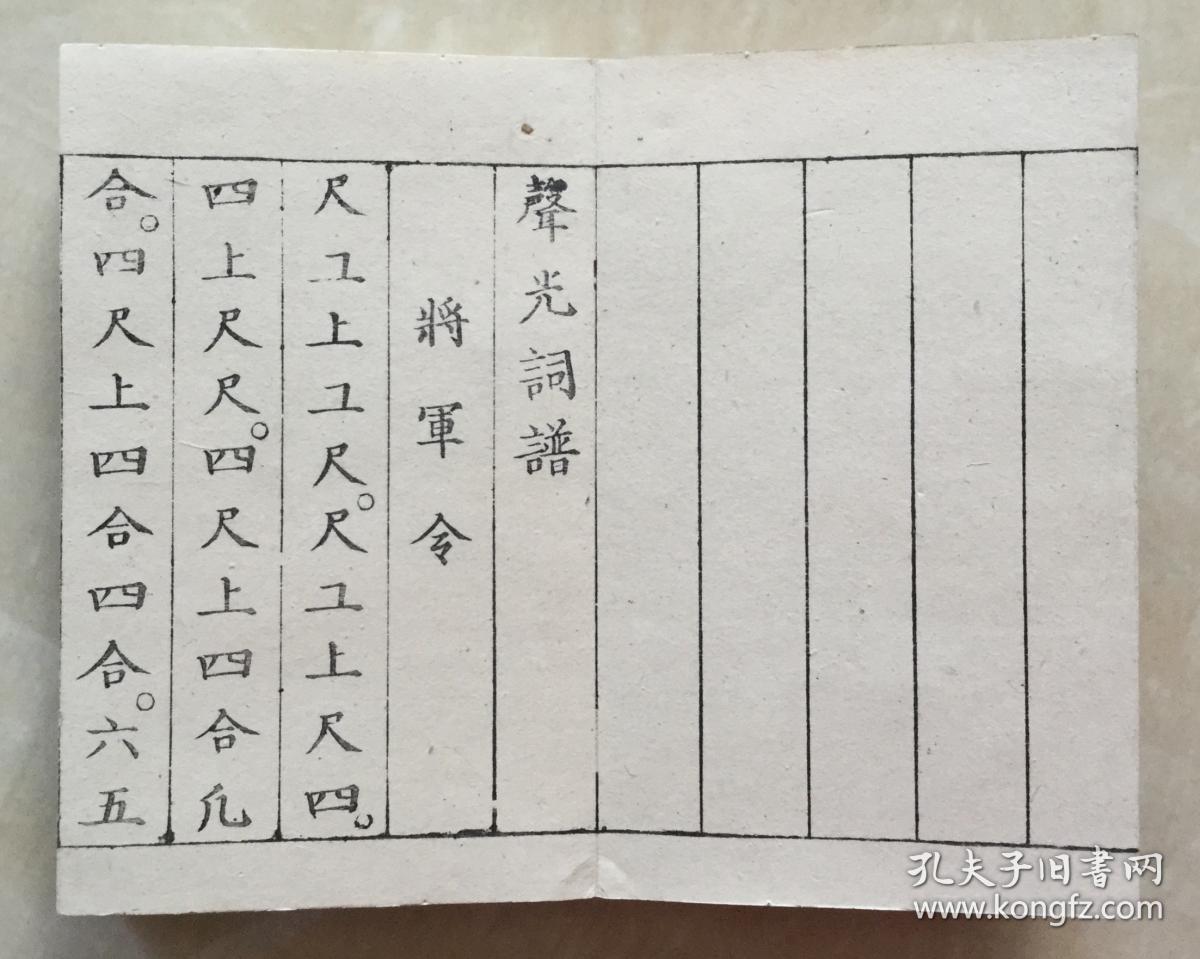 聲光詞譜
將軍令
尺工上工尺。尺工上尺四。
四上尺尺。四尺上四合凡
合。四尺上四合四合。六五
孔夫子旧書网
www.kongfz.com